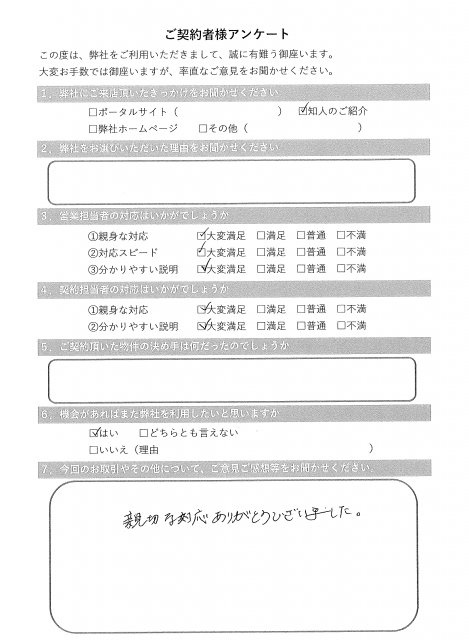 ご契約者様アンケート
この度は、弊社をご利用いただきまして、誠に有難う御座います。
大変お手数では御座いますが、率直なご意見をお聞かせください。
1．弊社にご来店頂いたきっかけをお聞かせください
□ポータルサイト（　　　　　　　　　　） ☑知人のご紹介
□弊社ホームページ □その他（　　　　　　　　　　　）
2．弊社をお選びいただいた理由をお聞かせください
3．営業担当者の対応はいかがでしょうか
①親身な対応 ☑大変満足 □満足 □普通 □不満
②対応スピード ☑大変満足 □満足 □普通 □不満
③分かりやすい説明 ☑大変満足 □満足 □普通 □不満
4．契約担当者の対応はいかがでしょうか
①親身な対応 ☑大変満足 □満足 □普通 □不満
②分かりやすい説明 ☑大変満足 □満足 □普通 □不満
5．ご契約頂いた物件の決め手は何だったのでしょうか
6．機会があればまた弊社を利用したいと思いますか
☑はい □どちらとも言えない
□いいえ（理由　　　　　　　　　　　　　　　　　　　　　）
7．今回のお取引やその他について、ご意見ご感想等をお聞かせください。
親切な対応ありがとうございました。